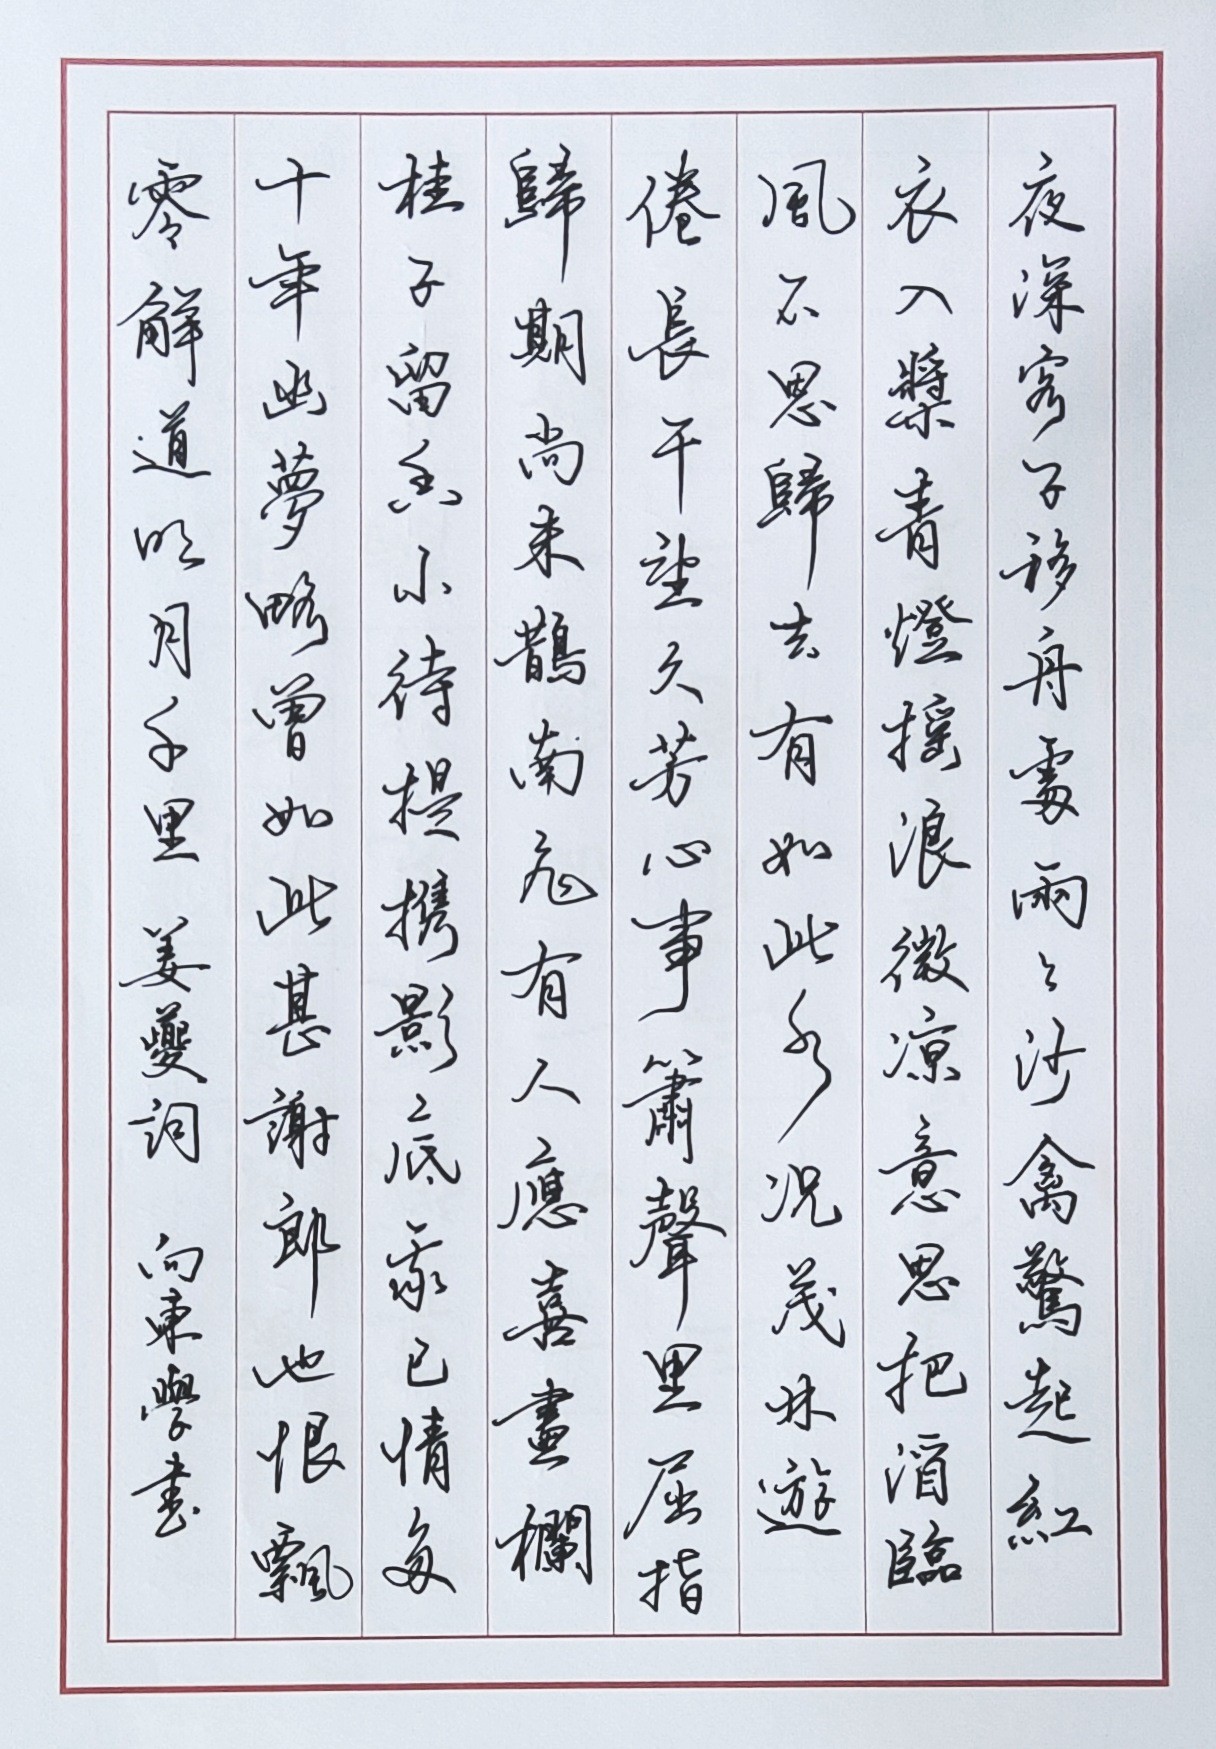 夜深客子移舟處兩々沙禽驚起紅
衣入槳青燈搖浪微凉意思把酒臨
風不思歸去有如此水况茂林遊
倦長干望久芳心事簫聲里屈指
歸期尚未鵲南飛有人應喜畫欄
桂子留香小待提携影底我已情多
十年幽夢略曾如此甚謝郎也恨飄
零解道明月千里 姜夔詞 向東學書